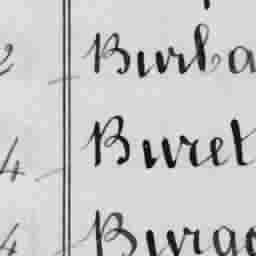 2 Burba
4 Buret
4 Burgo